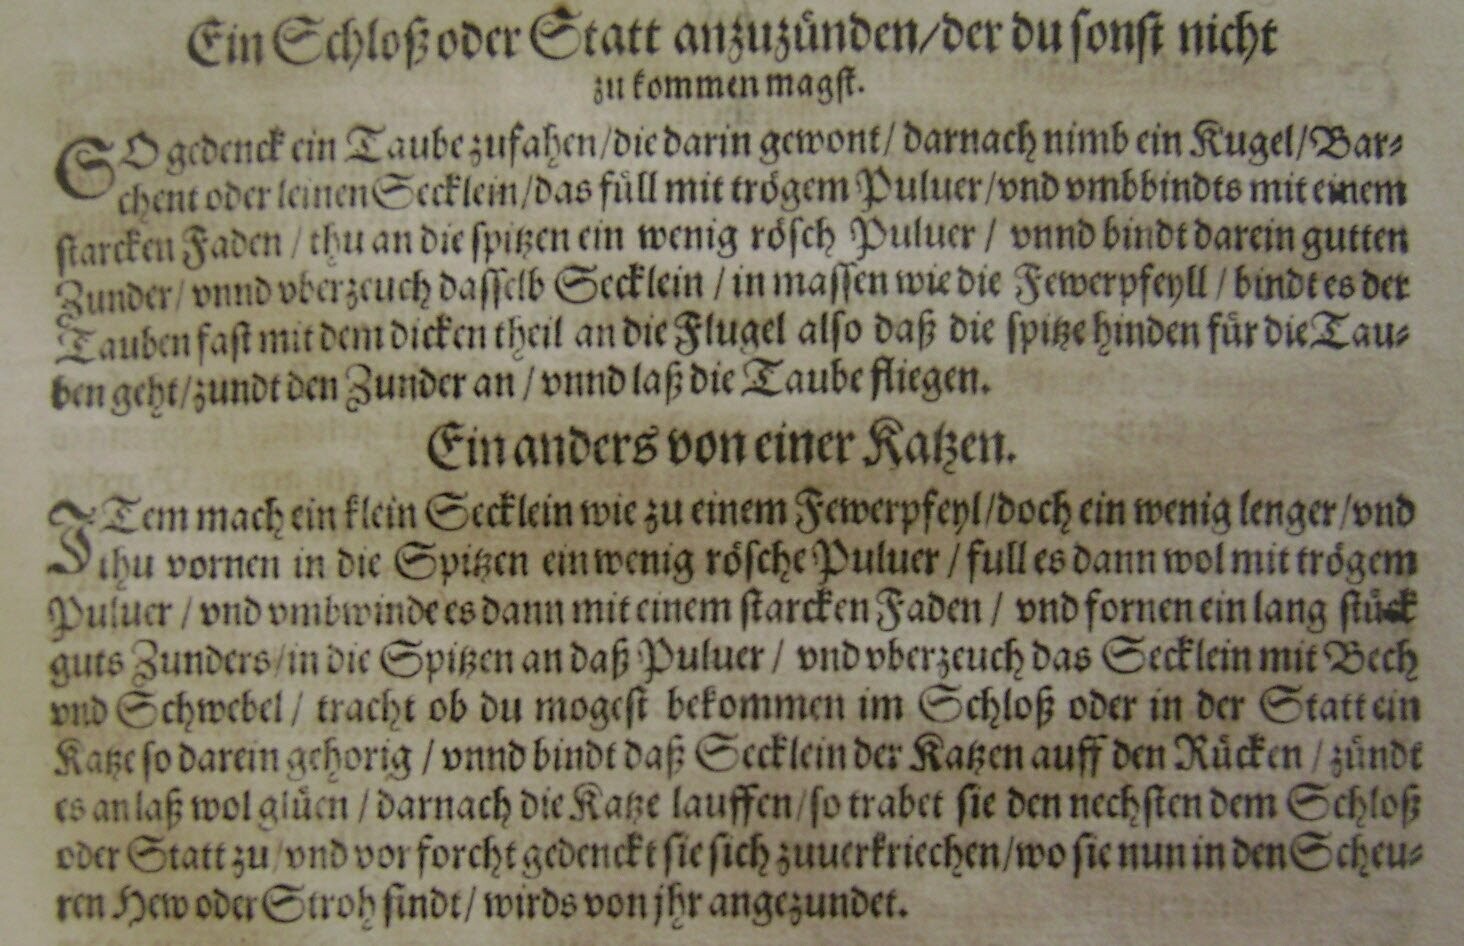 Ein Schloß oder Statt anzuzünden/der du sonst nicht
zu kommen magst.
SO gedenck ein Taube zufahen/die darin gewont/ darnach nimb ein Kugel/Bar⸗
chent oder leinen Secklein/das füll mit trögem Puluer/vnd vmbbindts mit einem
starcken Faden/ thu an die spitzen ein wenig rösch Puluer/ vnnd bindt darein gutten
Zunder/ vnnd vberzeuch dasselb Secklein/ in massen wie die Fewerpfeyll/ bindt es der
Tauben fast mit dem dicken theil an die Flugel also daß die spitze hinden für die Tau⸗
ben geht/zundt den Zunder an/ vnnd laß die Taube fliegen.
Ein anders von einer Katzen.
ITem mach ein klein Secklein wie zu einem Fewerpfeyl/doch ein wenig lenger/vnd
thu vornen in die Spitzen ein wenig rösche Puluer/ full es dann wol mit trögem
Puluer/ vnd vmbwinde es dann mit einem starcken Faden/ vnd fornen ein lang stück
guts Zunders/in die Spitzen an daß Puluer/ vnd vberzeuch das Secklein mit Bech
vnd Schwebel/ tracht ob du mogest bekommen im Schloß oder in der Statt ein
Katze so darein gehorig/ vnnd bindt daß Secklein der Katzen auff den Rücken/ zündt
es an laß wol glüen/ darnach die Katze lauffen/so trabet sie den nechsten dem Schloß
oder Statt zu/vnd vor forcht gedenckt sie sich zuuerkriechen/wo sie nun in den Scheu⸗
ren Hew oder Stroh findt/ wirds von jhr angezundet.